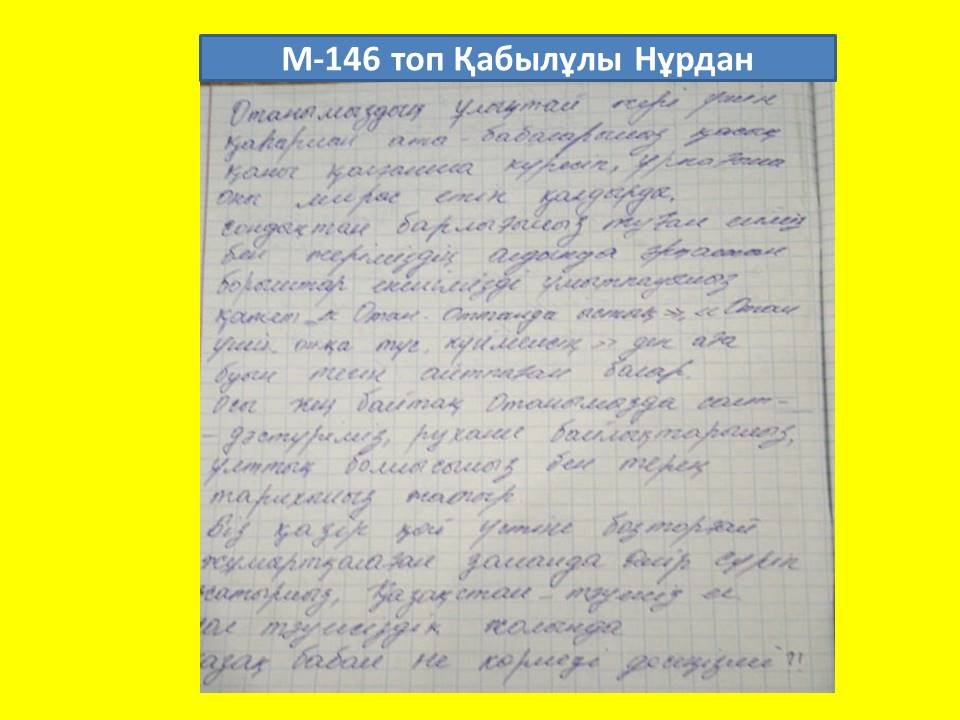 М-146 топ Қабылұлы Нұрдан
Отанымыздың ұлықтай жері үшін
қаһарман ата - бабаларымыз қасық
қаны қалғанша күресіп, ұрпағына
оны мирас етіп қалдырды.
сондықтан барлығымыз туған еліміз
бен жеріміздің алдында әрқашан
борыштар екенімізді ұмытпауымыз
қажет - « Отан - оттанда ыстық », « Отан
үшін отқа түс, күймейсің » деп аға
буын тегін айтпаған болар.
Осы кең байтақ Отанымызда салт-
- дәстүріміз, рухани байлықтарымыз,
ұлттық болмысымыз бен терең
тарихымыз жатыр
Біз қазір қой үстіне бозторғай
жұмыртқалаған заманда өмір сүріп
жатырмыз, Қазақстан - тәуелсіз ел
ал тәуелсіздік жолында
қазақ бабам не көрмеді десеңізші ?!